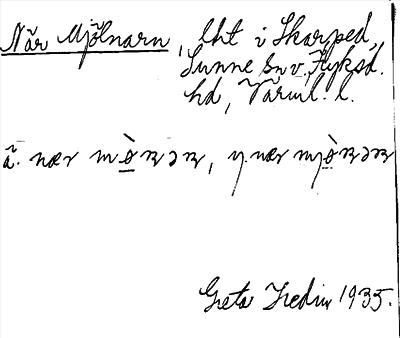 När Mjölnarn, lht i Skarped,
Sunne sn v. Fryksd.
hd, Värml. l.
ä. nær mø̀ꞃəꞃ, y. nær mjø̀ꞃəꞃ
Greta Hedin 1935.